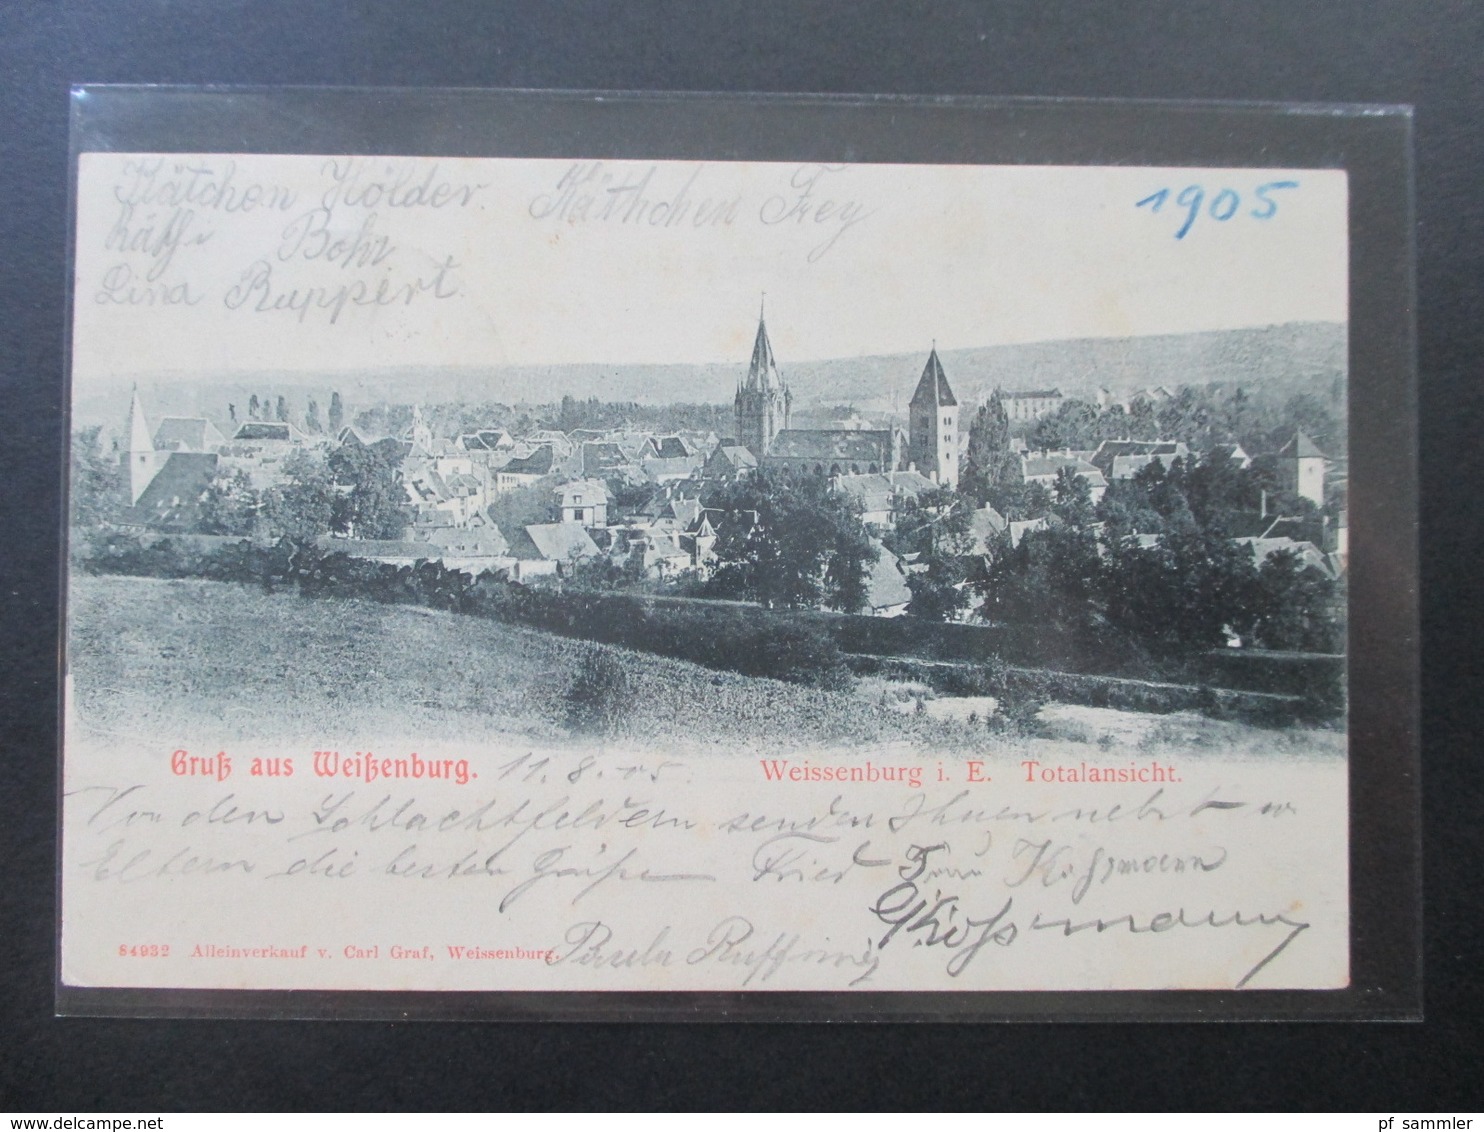 Kätchen Hölder. Käthchen Frey
1905
Käthi Bohr
Lina Ruppert.
Gruß aus Weißenburg. 11.8.05. Weissenburg i. E. Totalansicht.
Von den Schlachtfeldern senden Ihnen nebst
Eltern die besten Grüße Fried Frau Koßmann
Koßmann
84932 Alleinverkauf v. Carl Graf, Weissenburg. Paula
pf_sammler
delcampe.net